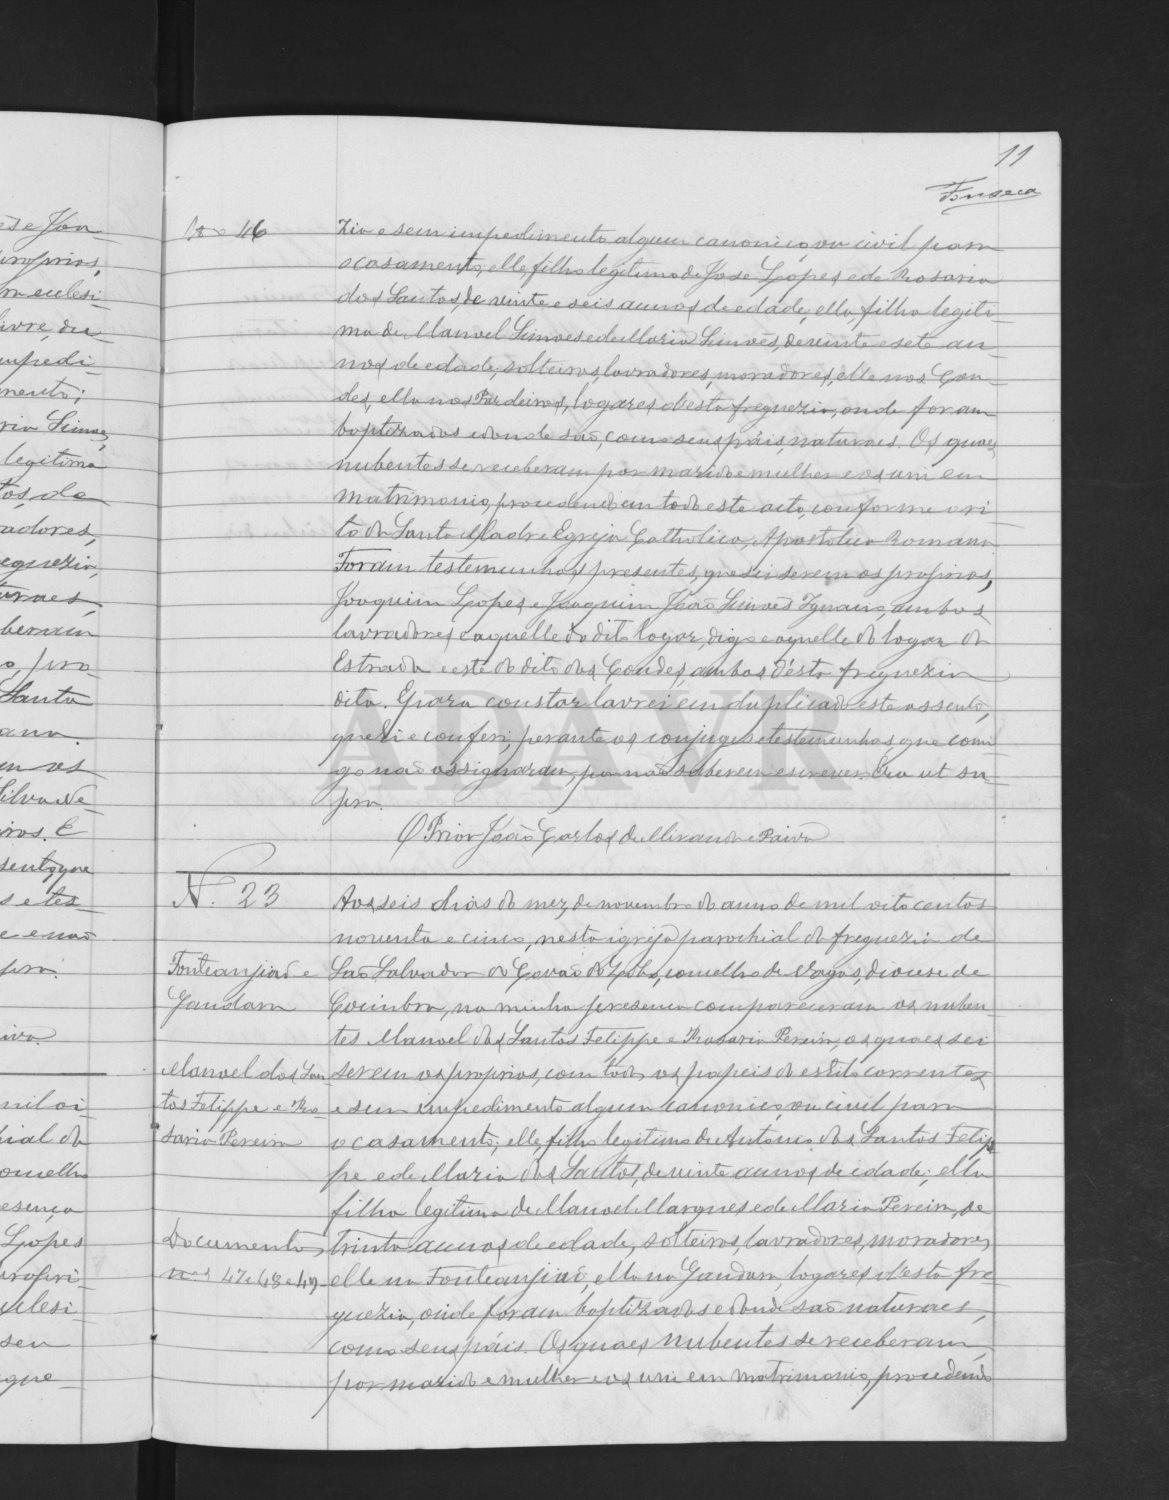 11
Fonseca
Nº 46
zia e sem impedimento algum canonico, ou civil para
o casamento; elle, filho legitimo de José Lopes e de Rosaria
dos Santos, de vinte e seis annos de edade; ella, filha legiti-
ma de Manoel Simões e de Maria Simões, de vinte e sete an-
nos de edade; solteiros, lavradores, moradores, elle nos Con-
des, ella nos Pardeiros, logares d'esta freguezia, onde foram
baptizados e donde são, como seus páis, naturaes. Os quaes
nubentes se receberam por marido e mulher e os uni em
matrimonio, procedendo em todo este acto, conforme o ri-
to da Santa Madre Egreja Catholica, Apostolica Romana.
Foram testemunhas presentes, que sei serem os proprios,
Joaquim Lopes e Joaquim João Simões Ignacio, ambos
lavradores, e aquelle do dito logar, digo e aquelle do logar da
Estrada e este do dito dos Condes, ambos d'ésta freguezia
dita. E para constar lavrei em duplicado este assento,
que li e conferi, perante os conjuges e testemunhas, que comi-
go não assignaram, por não saberem escrever. Era ut su-
pra.
O Prior João Carlos de Miranda e Paiva
N. 23
Fonteanjião e
Gandara
Manoel dos San-
tos Felippe e Ro-
saria Pereira
Documentos
nos 47, 48 e 49-
Aos seis dias do mez de novembro do anno de mil oito centos
noventa e cinco, nesta igreja parochial da freguezia de
São Salvador do Covão do Lobo, concelho de Vagos, diocese de
Coimbra, na minha presença compareceram os nuben-
tes Manoel dos Santos Felippe e Rosaria Pereira, os quaes sei
serem os proprios, com todos os papeis do estilo correntes
e sem impedimento algum canonico, ou civil para
o casamento; elle, filho legitimo de Antonio dos Santos Felip-
pe e de Maria dos Santos, de vinte annos de edade; ella
filha legitima de Manoel Marques e de Maria Pereira, de
trinta annos de edade, solteiros, lavradores, moradores,
elle na Fonteanjião, ella na Gandara, logares d'esta fre-
guezia, onde foram baptizados e donde são naturaes,
como seus páis. Os quaes nubentes se receberam
por marido e mulher e os uni em matrimonio, procedendo
ADAVR